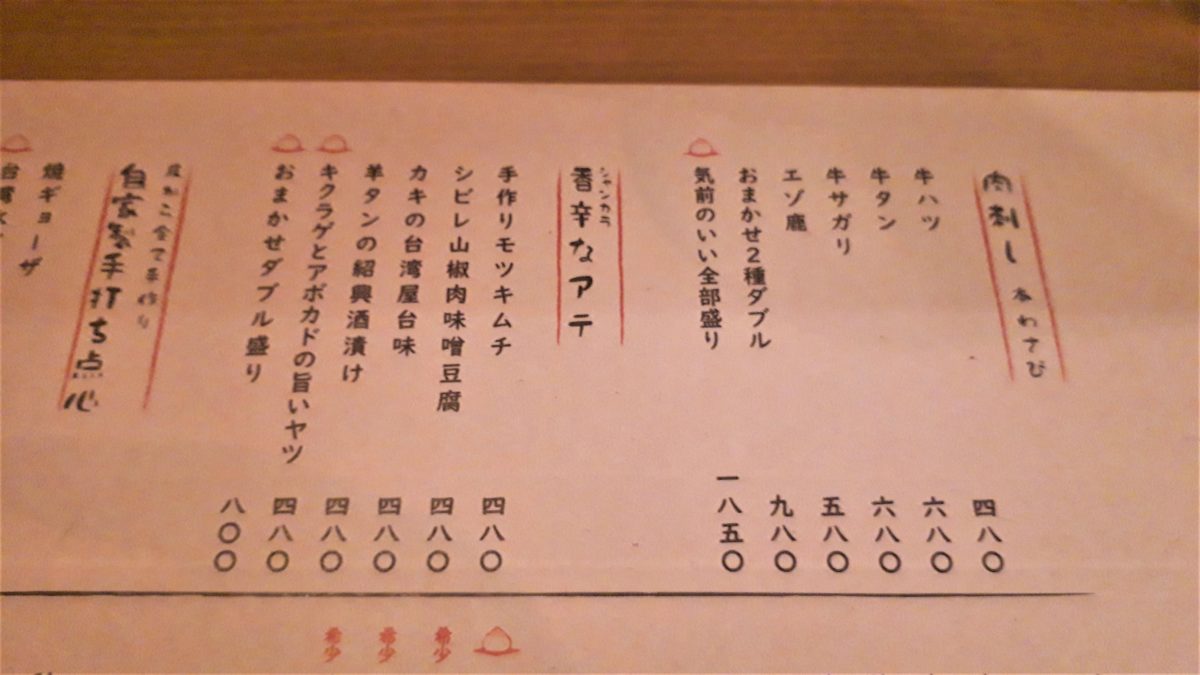 肉刺し 本わさび
牛ハツ 四八〇
牛タン 六八〇
牛サガリ 六八〇
エゾ鹿 五八〇
おまかせ2種ダブル 九八〇
気前のいい全部盛り 一八五〇
シャンカラ
香辛なアテ
手作りモツキムチ 四八〇
シビレ山椒肉味噌豆腐 四八〇
カキの台湾屋台味 四八〇
羊タンの紹興酒漬け 四八〇
キクラゲとアボカドの旨いヤツ 四八〇
おまかせダブル盛り 八〇〇
全て手作り
自家製手打ち点心
焼ギョーザ
台湾
希少
希少
希少